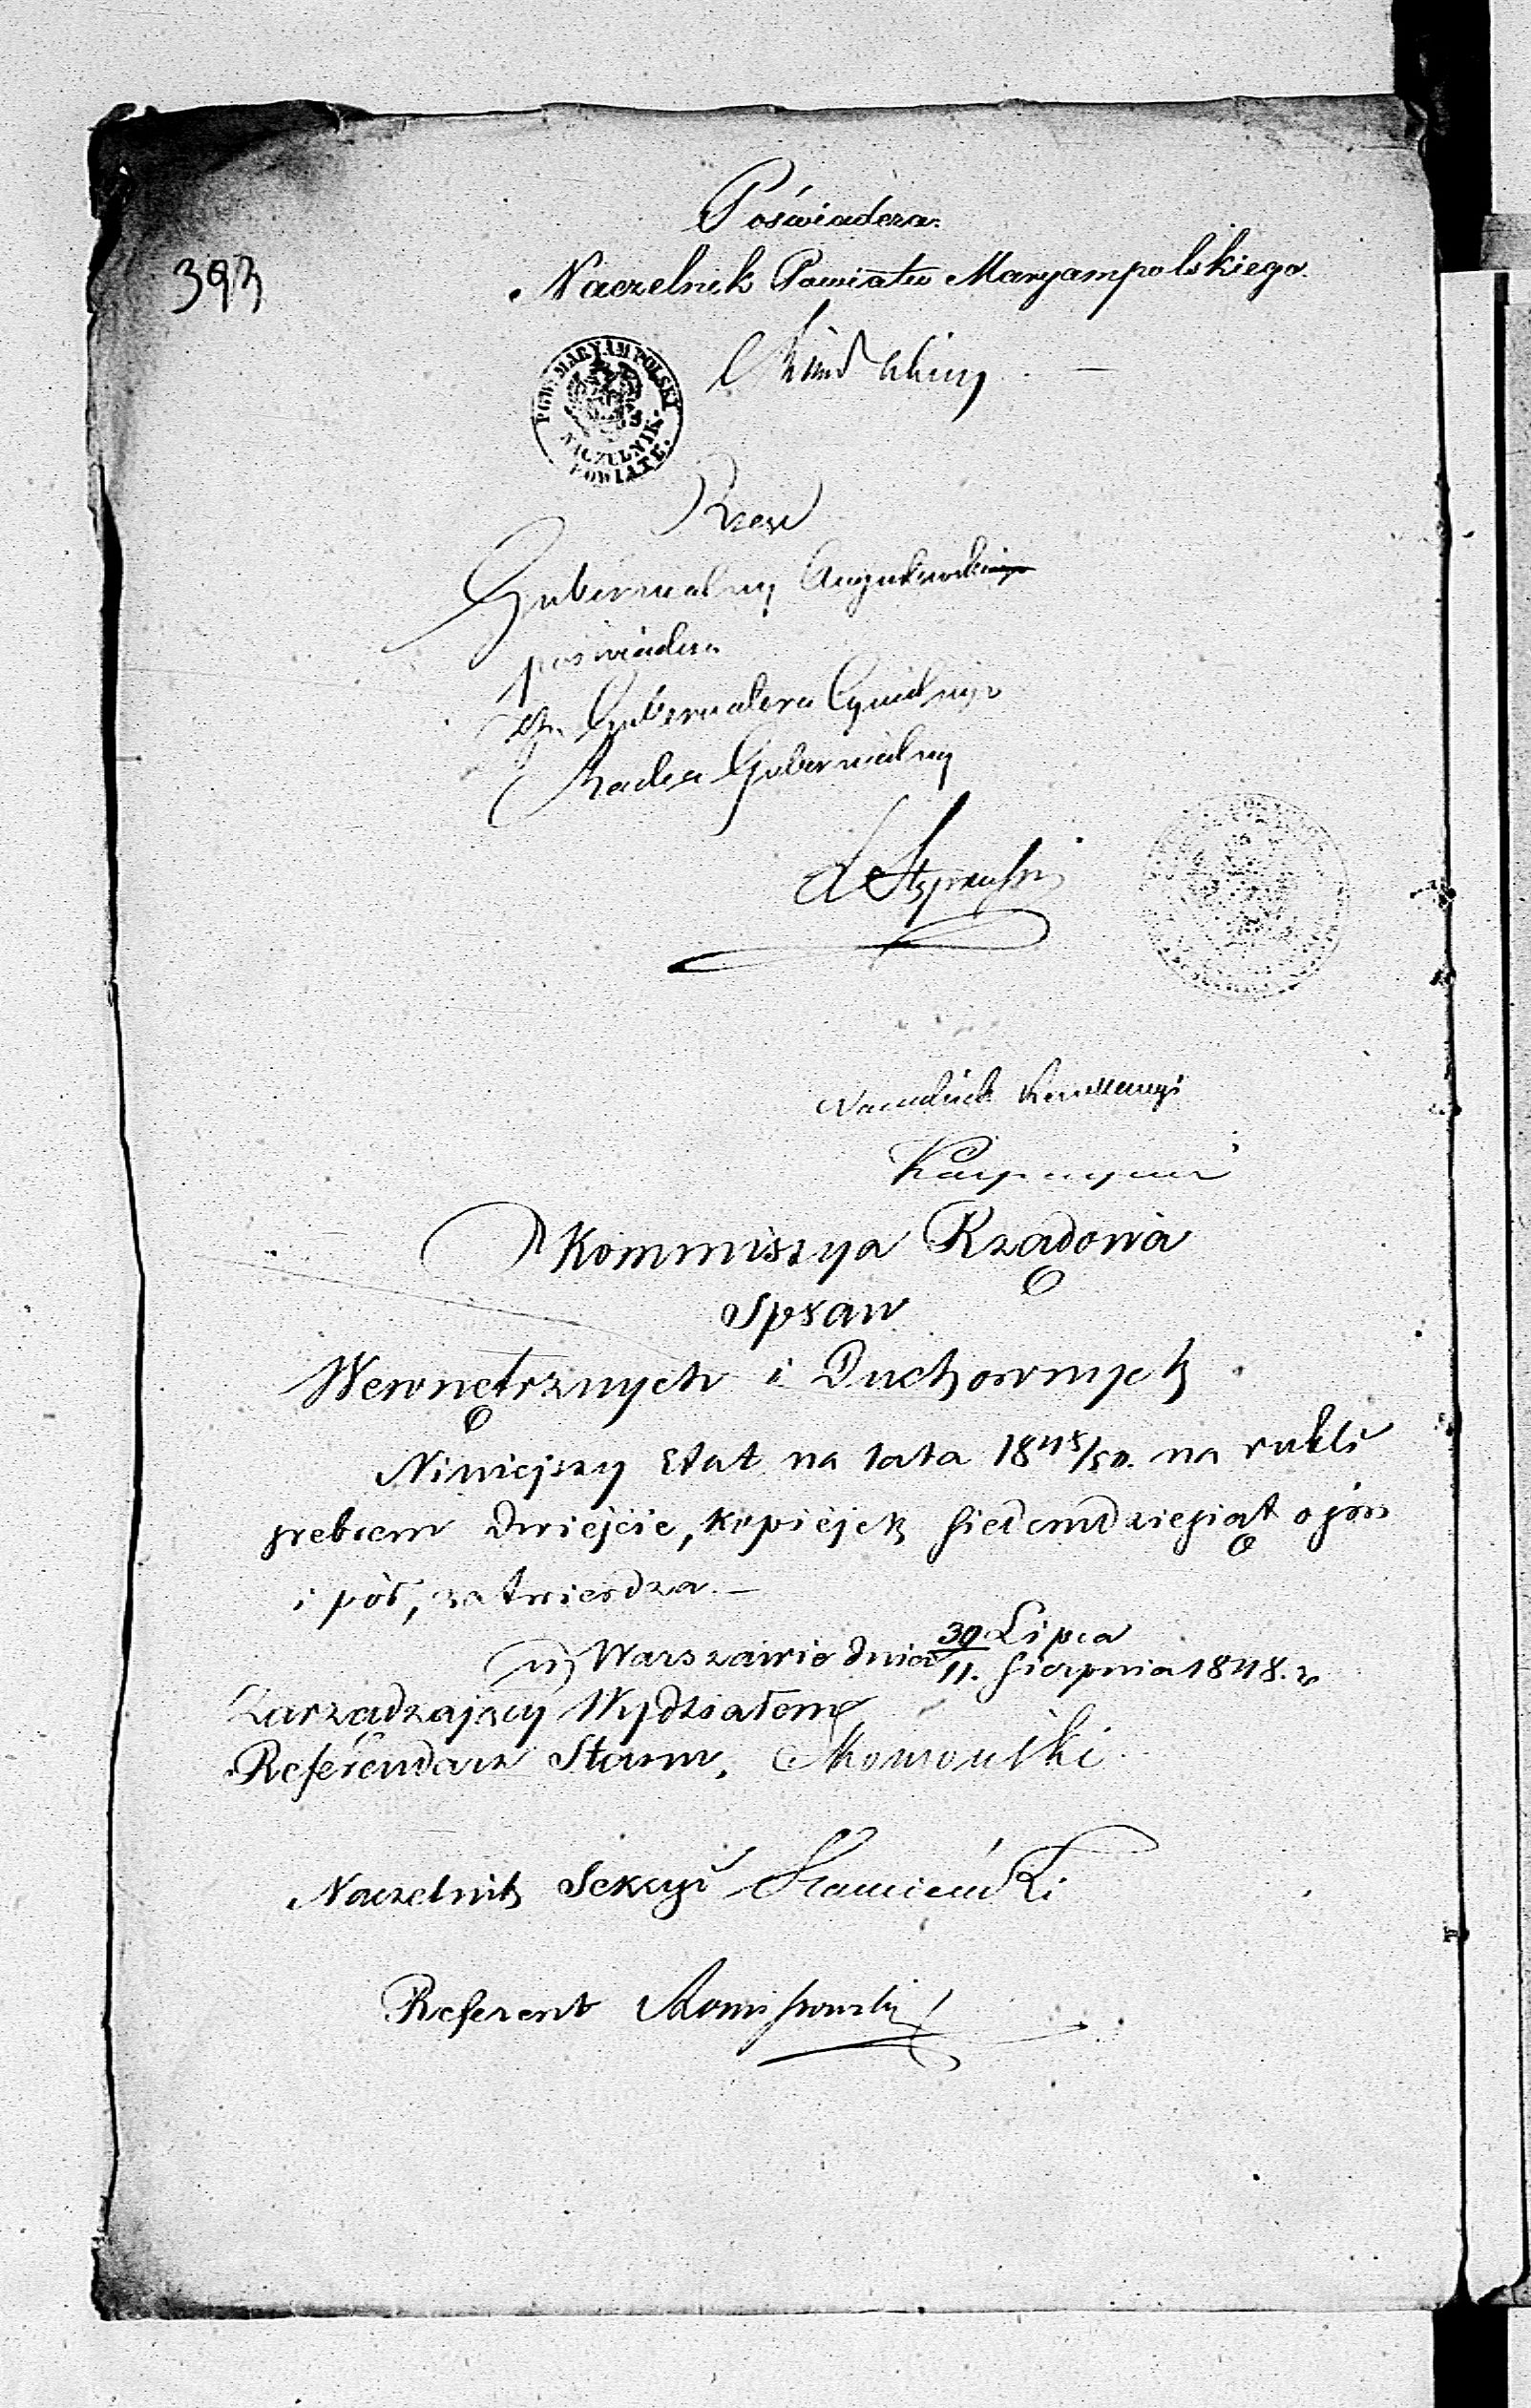 393
Poświadcza.
Naczelnik Powiatu Maryampolskiego.
POW. MARYAMPOLSKY
NACZELNIK
POWIATE.
Rząd
Gubernialny Augustowski
poświadcza
Gubernatora Cywilnego
Radca Gubernialny
Naczelnik Kancellaryi
Kommissya Rządowa
Spraw
Wewnętrznych i Duchownych
Niniejszy Etat na lata 1845/50. na rubli
srebrem dwieście, kopiejek siedmdziesiąt ośm
i pół, zatwierdza.—
w Warszawie dnia 30 Lipca
11. Sierpnia 1848. r.
Zarządzający Wydziałem
Referendarz Stanu,
Naczelnik Sekcyi
Referent